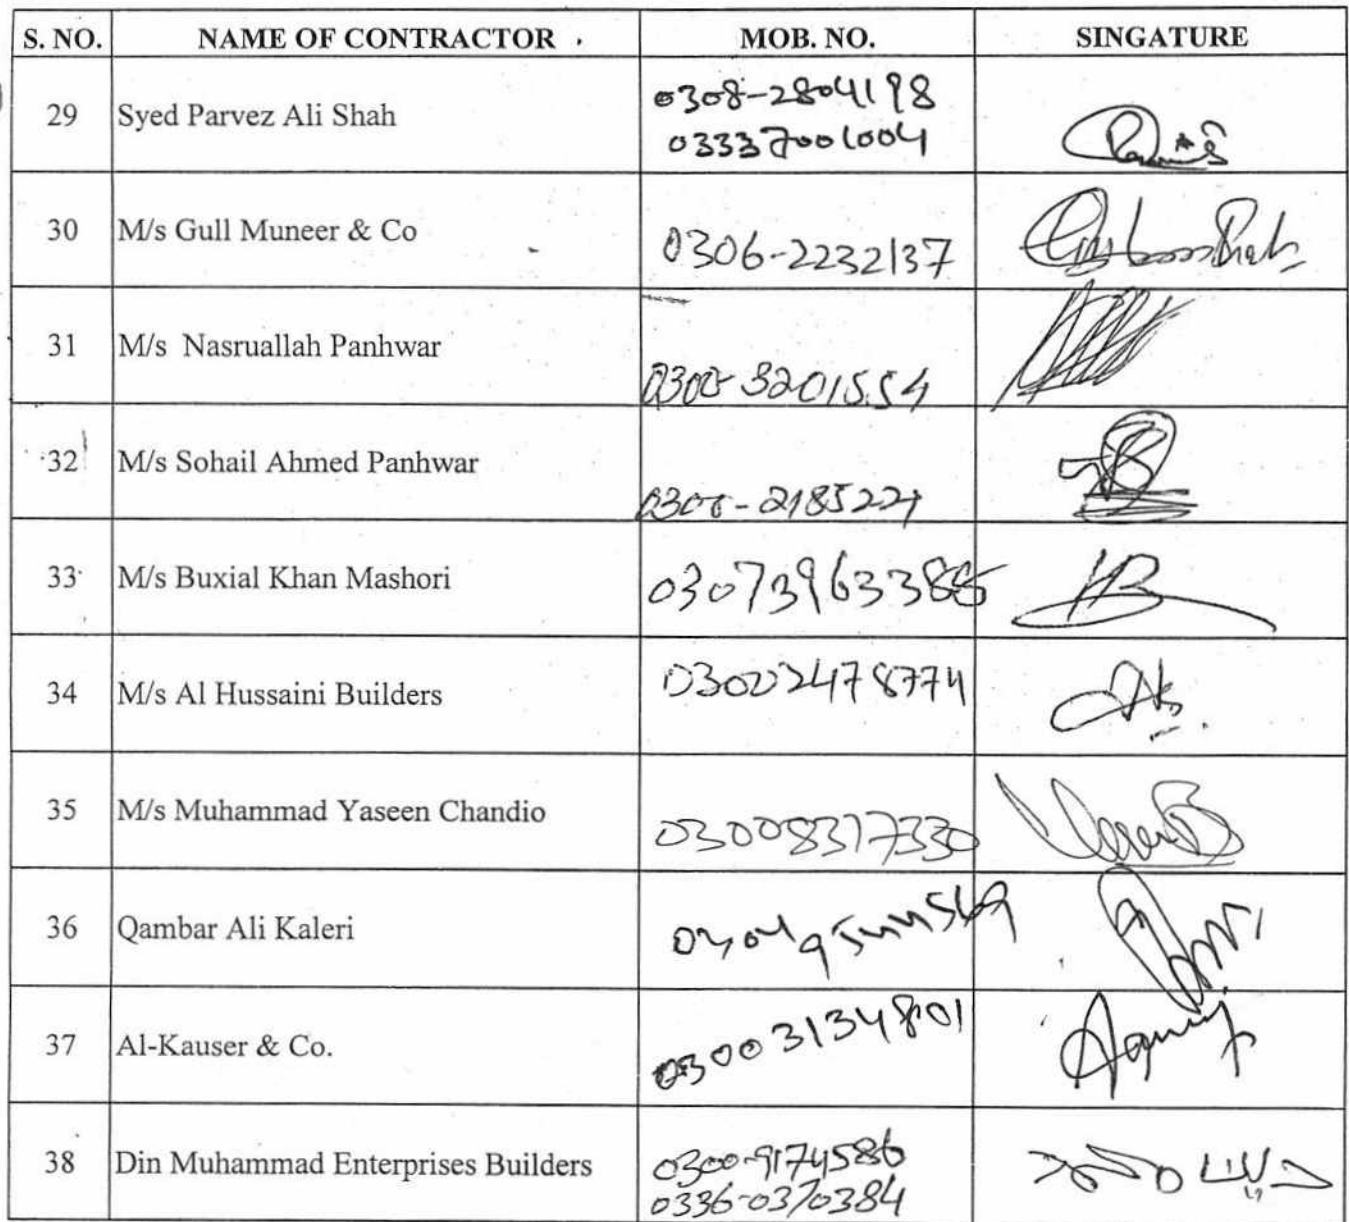 S. NO. NAME OF CONTRACTOR MOB. NO. SINGATURE
29 Syed Parvez Ali Shah 0308-2804198
03337001004
30 M/s Gull Muneer & Co 0306-2232137
31 M/s Nasruallah Panhwar 0300-3201554
32 M/s Sohail Ahmed Panhwar 0300-2185221
33 M/s Buxial Khan Mashori
34 M/s Al Hussaini Builders 03002478774
35 M/s Muhammad Yaseen Chandio 03008317330
36 Qambar Ali Kaleri
37 Al-Kauser & Co. 03003134801
38 Din Muhammad Enterprises Builders 0300-9174586
0336-0370384